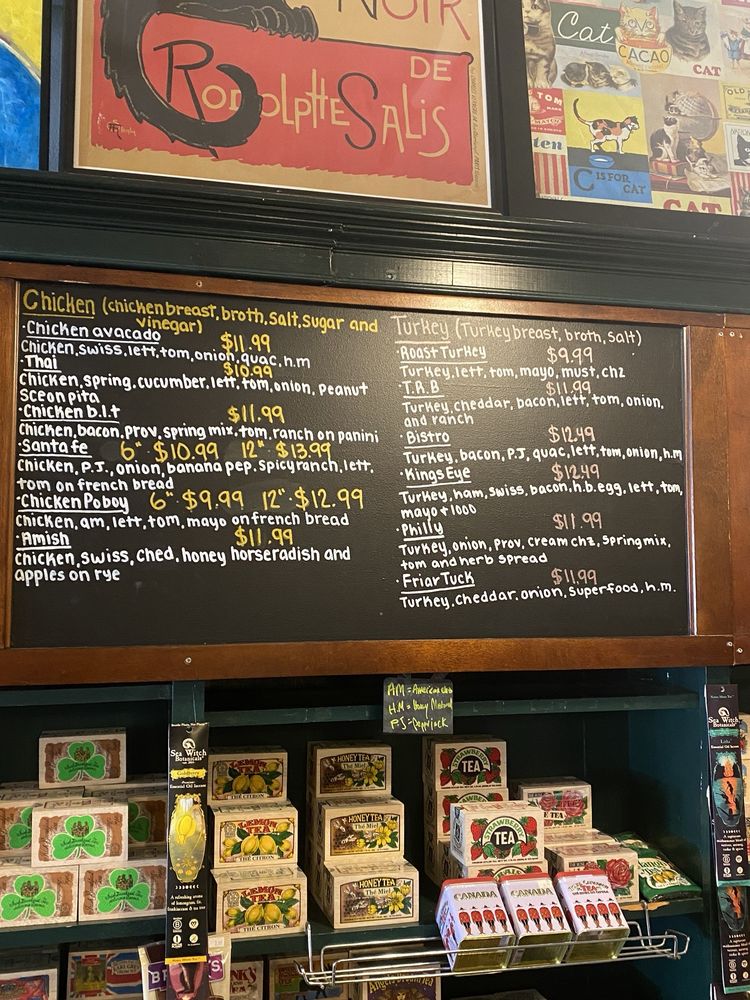 NOIR
DE
RODOLPHE SALIS
Cat
CACAO
CAT
C IS FOR CAT
CAT
Chicken (chicken breast, broth, salt, sugar and
vinegar)
·Chicken avacado $11.99
Chicken, swiss, lett, tom, onion, guac, h.m
·Thai $10.99
Chicken, spring, cucumber, lett, tom, onion, peanut
sce on pita
·Chicken b.l.t $11.99
Chicken, bacon, prov, spring mix, tom, ranch on panini
·Santa fe 6" $10.99 12" $13.99
Chicken, P.J., onion, banana pep. spicy ranch, lett.
tom on french bread
·Chicken Poboy 6" $9.99 12" $12.99
Chicken, am, lett, tom, mayo on french bread
·Amish $11.99
Chicken, swiss, ched, honey horseradish and
apples on rye
Turkey (Turkey breast, broth, salt)
·Roast Turkey $9.99
Turkey, lett, tom, mayo, must, chz
·T.R.B $11.99
Turkey, cheddar, bacon, lett, tom, onion,
and ranch
·Bistro $12.49
Turkey, bacon, P.J, guac, lett, tom, onion, h.m
·Kings Eye $12.49
Turkey, ham, swiss, bacon, h.b.egg, lett, tom,
mayo + 1000
·Philly $11.99
Turkey, onion, prov, cream chz, spring mix,
tom and herb spread
·Friar Tuck $11.99
Turkey, cheddar, onion, superfood, h.m.
HM = Honey Mustard
PJ = Pepperjack
Sea Witch
Botanicals
LEMON
TEA
THÉ CITRON
LEMON
TEA
THÉ CITRON
LEMON
TEA
THÉ CITRON
HONEY TEA
Thé Miel
HONEY TEA
Thé Miel
HONEY TEA
Thé Miel
STRAWBERRY
TEA
STRAWBERRY
STRAWBERRY
TEA
CANADA
CANADA
TEA
Sea Witch
Botanicals